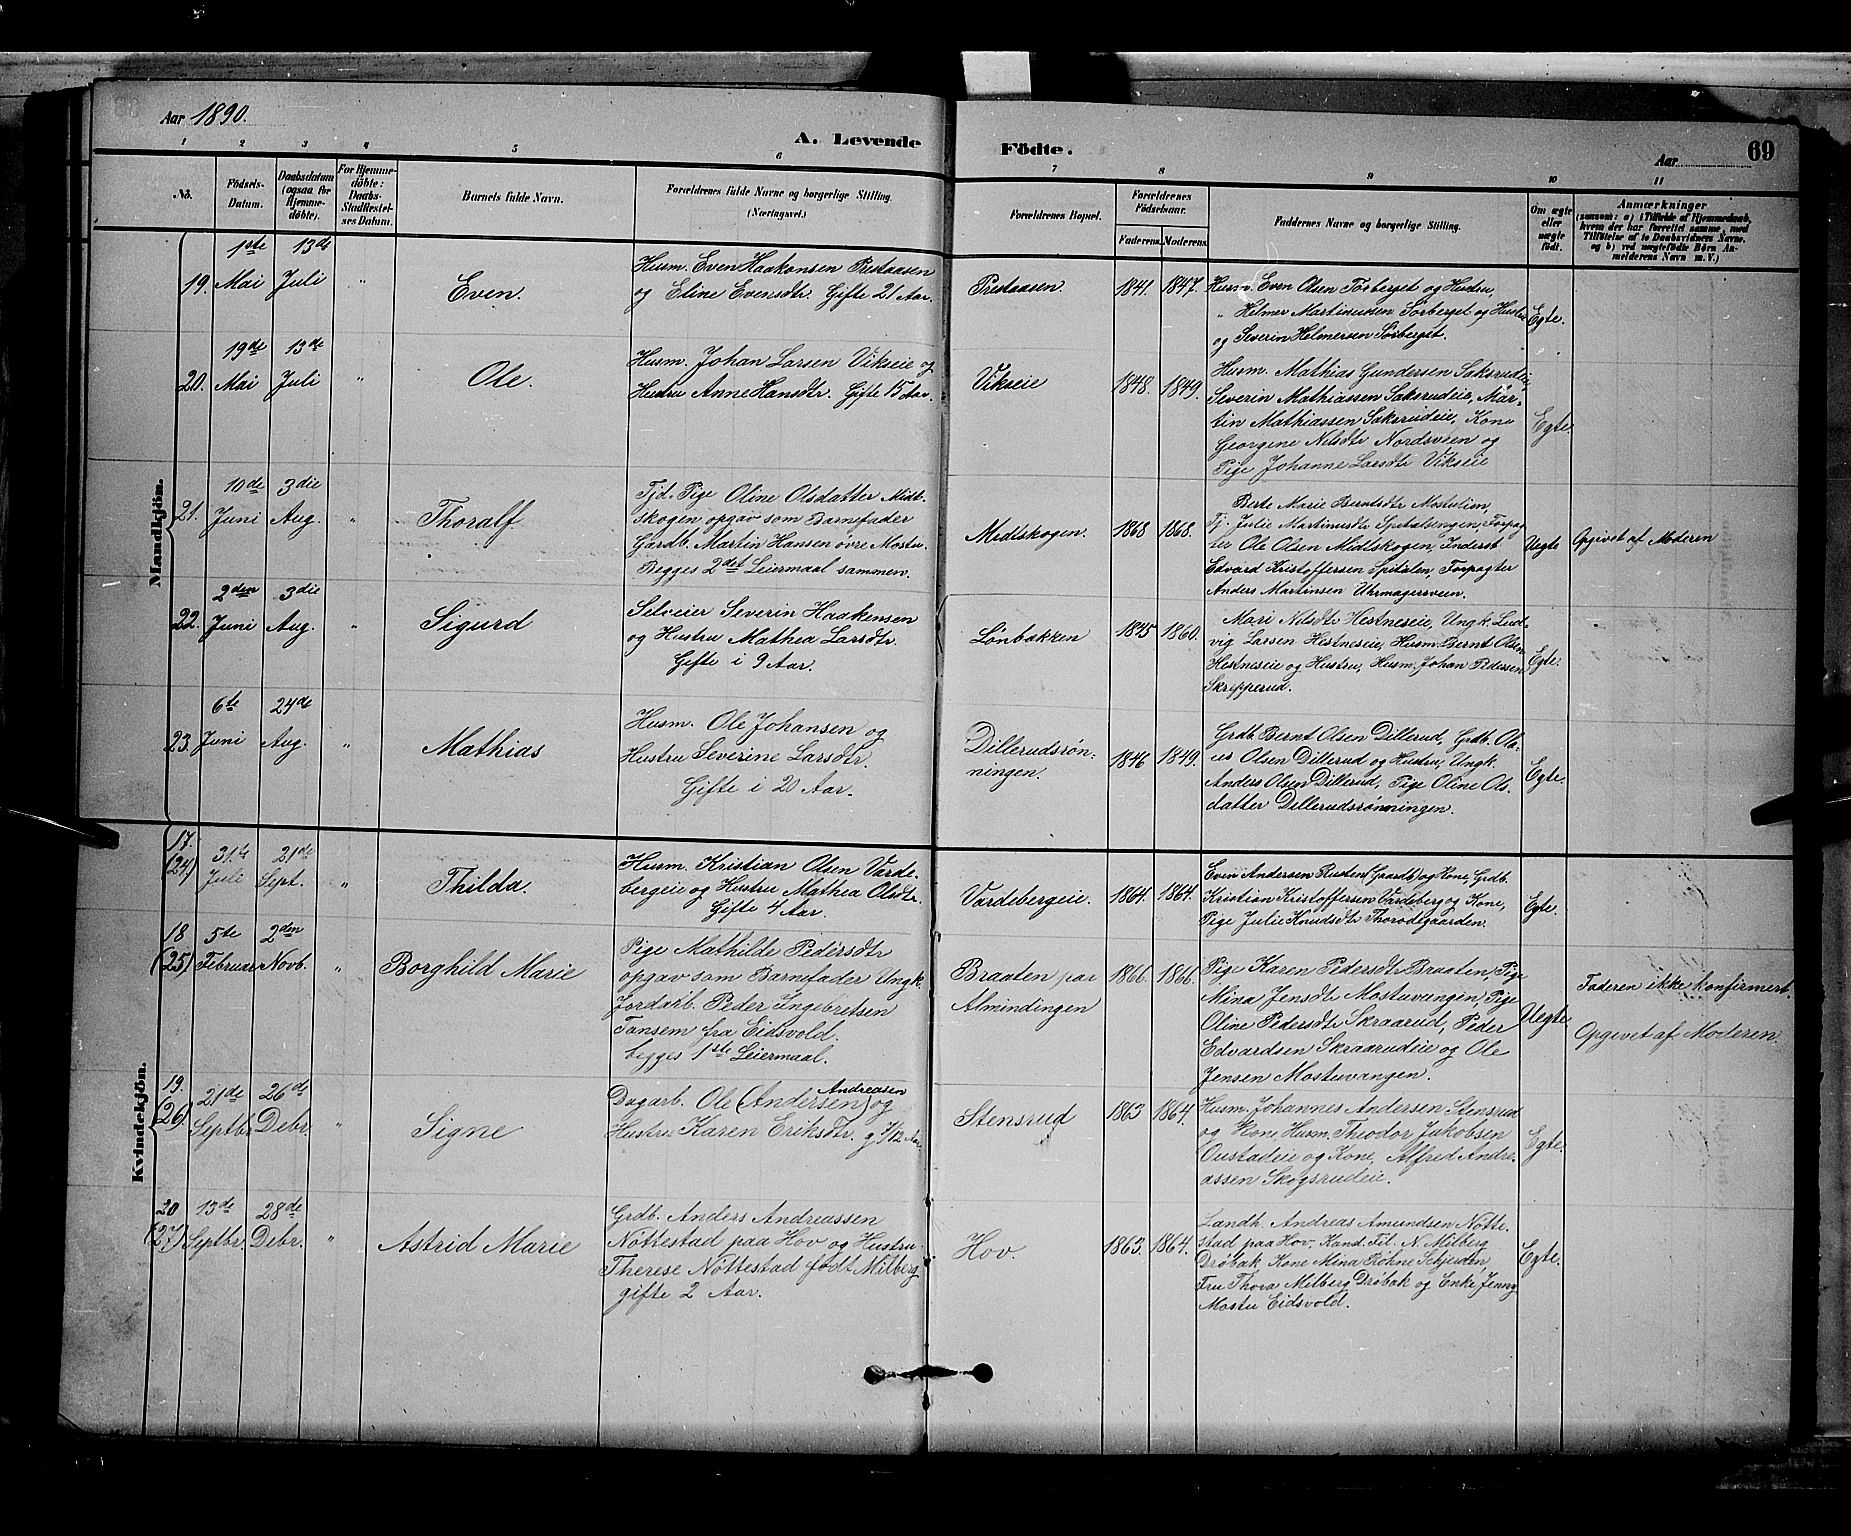 Aar 1890.
A. Levende Födte.
Aar 69
1 2 3 4 5 6 7 8 9 10 11
No. Födsels-Datum. Daabsdatum (ogsaa for Hjemme-döbte). For Hjemme-döbte: Daabs-Stadfæstel-ses Datum. Barnets fulde Navn. Forældrenes fulde Navne og borgerlige Stilling. (Næringsvei.) Forældrenes Bopæl. Forældrenes Födselsaar. Faderens. Moderens. Faddernes Navne og borgerlige Stilling. Om ægte eller uægte födt. Anmærkninger (saasom: a) i Tilfælde af Hjemmedaab, hvem der har forrettet samme, med Tilföielse af to Daabsvidners Navne, og b) ved uægtefödte Börn Anmelderens Navn m. V.)
Mandkjön.
19. 1ste Mai 13de Juli " Even.
Husm. Even Haakonsen Prestaasen
og Eline Evensdtr. Gifte 21 Aar.
Prestaasen 1841. 1847.
Husm. Even Olsen Törberget og Hustru,
" Helmer Martinusen Sörberget og Hustru
og Severin Helmersen Sörberget.
Egte.
20. 19de Mai 13de Juli " Ole.
Husm. Johan Larsen Vikseie og
Hustru Anne Hansdtr. Gifte 15 Aar.
Vikseie 1848. 1849.
Husm. Mathias Gundersen Saksrudeie,
Severin Mathiassen Saksrudeie, Mar-
tin Mathiassen Saksrudeie, Kone
Georgene Nilsdtr Nordsveen og
Pige Johanne Larsdtr Vikseie
Egte.
21. 10de Juni 3die Aug. " Thoralf
Tjd. Pige Oline Olsdatter Midt-
skogen opgav som Barnefader
Gardb. Martin Hansen övre Mostu.
Begges 2det Leiermaal sammen.
Midtskogen. 1868 1868.
Berte Marie Berntsdtr Mostulien,
Tj. Julie Martinusdtr Spetalsengen, Forpag-
ter Ole Olsen Midtskogen, Inderst
Edvard Kristoffersen Spitalen, Forpagter
Anders Martinsen Uhrmagersveen.
Uegte Opgivet af Moderen
22. 2den Juni 3die Aug. " Sigurd
Selveier Severin Haakensen
og Hustru Mathea Larsdtr.
Gifte i 9 Aar.
Lönbakken 1845 1860.
Mari Nilsdtr Hestneseie, Ungk. Lud-
vig Lassen Hestneseie, Husm. Bernt Olsen
Hestneseie og Hustru, Husm. Johan Pedersen
Skrepperud.
Egte.
23. 6te Juni 24de Aug. " Mathias
Husm. Ole Johansen og
Hustru Severine Larsdtr.
Gifte i 20 Aar.
Dillerudsrön-
ningen. 1846 1849.
Grdb. Bernt Olsen Dillerud, Grdb. Ola-
us Olsen Dillerud og Hustru, Ungk.
Anders Olsen Dillerud, Pige Oline Ols-
datter Dillerudsrönningen.
Egte.
Kvindekjön.
17. (24) 31te Juli 21de Sept. " Thilda.
Husm. Kristian Olsen Varde-
bergeie og Hustru Mathea Olsdtr.
Gifte 4 Aar.
Vardebergeie. 1864. 1864.
Even Andersen Rusten (Gaardb.) og Kone, Grdb.
Kristian Kristoffersen Vardeberg og Kone,
Pige Julie Knudsdtr Thorodgaarden.
Egte.
18 (25) 5te Februar 2den Novb. " Borghild Marie
Pige Mathilde Pedersdtr
opgav som Barnefader Ungk.
Jordarb. Peder Ingebretsen
Tansem fra Eidsvold.
begges 1ste Leiermaal.
Braaten paa
Almindingen 1866. 1866.
Pige Karen Pedersdtr Braaten, Pige
Mina Jensdtr Mostuvangen, Pige
Oline Pedersdtr Skraarud, Peder
Edvardsen Skraarudeie og Ole
Jensen Mostuvangen.
Uegte
Faderen ikke konfirmert.
Opgivet af Moderen.
19. (26) 21de Septbr. 26de Debr. " Signe
Dagarb. Ole (Andersen) Andreasen og
Hustru Karen Eriksdtr. g. 7/12 Aar
Stensrud 1863 1864.
Husm. Johannes Andersen Stensrud
og Kone, Husm. Theodor Jakobsen
Oustadeie og Kone, Alfred Andre-
assen Skogsrudeie.
Egte.
20 (27) 13de Septbr. 28de Debr. " Astrid Marie
Grdb. Anders Andreassen
Nöttestad paa Hov og Hustru
Therese Nöttestad födt Milberg
gifte 2 Aar.
Hov. 1863. 1864.
Landh. Andreas Amundsen Nötte-
stad paa Hov, Kand. Fil. N. Milberg
Dröbak, Kone Mina Röhne Schjerden,
Fru Thora Milberg Dröbak og Enke Jenny
Mostu Eidsvold.
Egte.